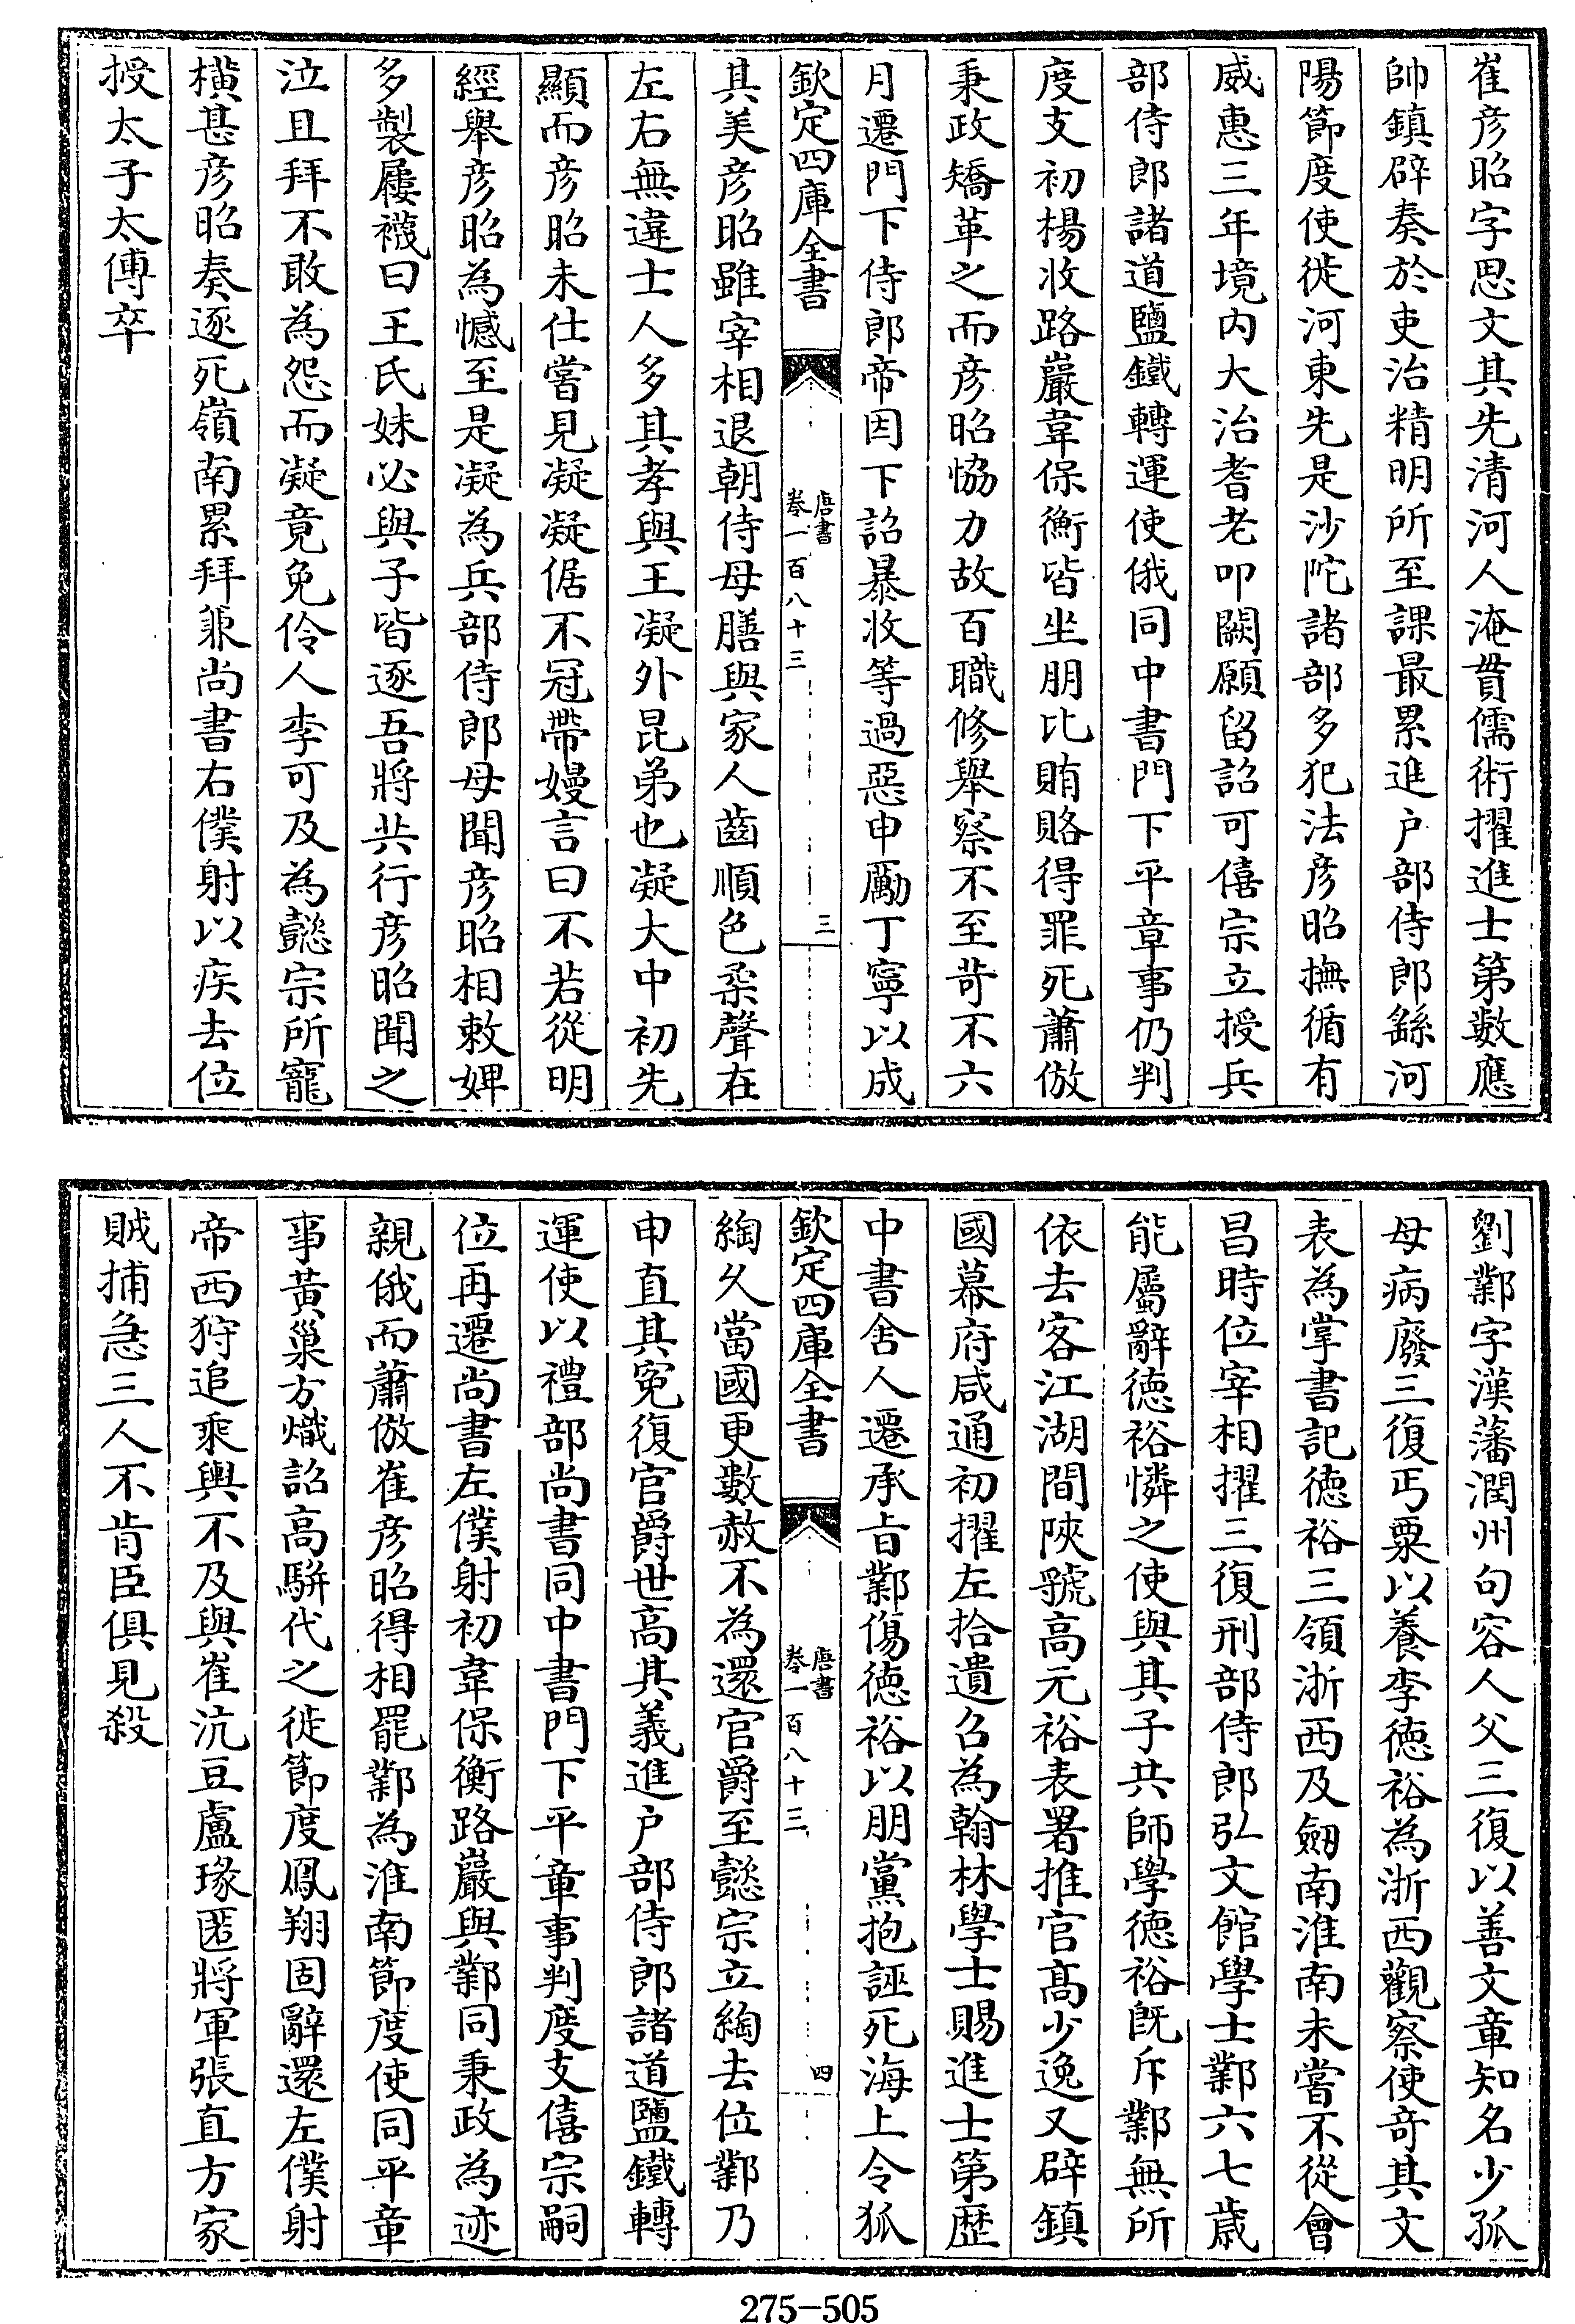 崔彦昭字思文其先清河人淹貫儒術擢進士第數應
帥鎮辟奏於吏治精明所至課最累進户部侍郎繇河
陽節度使徙河東先是沙陀諸部多犯法彦昭撫循有
威惠三年境内大治耆老叩闕願留詔可僖宗立授兵
部侍郎諸道鹽鐵轉運使俄同中書門下平章事仍判
度支初楊收路巖韋保衡皆坐朋比賄賂得罪死蕭倣
秉政矯革之而彦昭協力故百職修舉察不至苛不六
月遷門下侍郎帝因下詔暴收等過惡申勵丁寧以成
欽定四庫全書
唐書
卷一百八十三
三
其美彦昭雖宰相退朝侍母膳與家人齒順色柔聲在
左右無違士人多其孝與王凝外昆弟也凝大中初先
顯而彦昭未仕嘗見凝凝倨不冠帶嫚言曰不若從明
經舉彦昭為憾至是凝為兵部侍郎母聞彦昭相敕婢
多製屨襪曰王氏妹必與子皆逐吾將共行彦昭聞之
泣且拜不敢為怨而凝竟免伶人李可及為懿宗所寵
橫甚彦昭奏逐死嶺南累拜兼尚書右僕射以疾去位
授太子太傅卒
劉鄴字漢藩潤州句容人父三復以善文章知名少孤
母病廢三復丐粟以養李徳裕為浙西觀察使奇其文
表為掌書記徳裕三領浙西及劒南淮南未嘗不從會
昌時位宰相擢三復刑部侍郎弘文館學士鄴六七歲
能屬辭徳裕憐之使與其子共師學徳裕既斥鄴無所
依去客江湖間陝虢高元裕表署推官髙少逸又辟鎮
國幕府咸通初擢左拾遺召為翰林學士賜進士第歴
中書舍人遷承旨鄴傷徳裕以朋黨抱誣死海上令狐
欽定四庫全書
唐書
卷一百八十三
四
綯久當國更數赦不為還官爵至懿宗立綯去位鄴乃
申直其寃復官爵世高其義進户部侍郎諸道鹽鐵轉
運使以禮部尚書同中書門下平章事判度支僖宗嗣
位再遷尚書左僕射初韋保衡路巖與鄴同秉政為迹
親俄而蕭倣崔彦昭得相罷鄴為淮南節度使同平章
事黃巢方熾詔高駢代之徙節度鳳翔固辭還左僕射
帝西狩追乘輿不及與崔沆豆盧瑑匿將軍張直方家
賊捕急三人不肯臣俱見殺
275-505